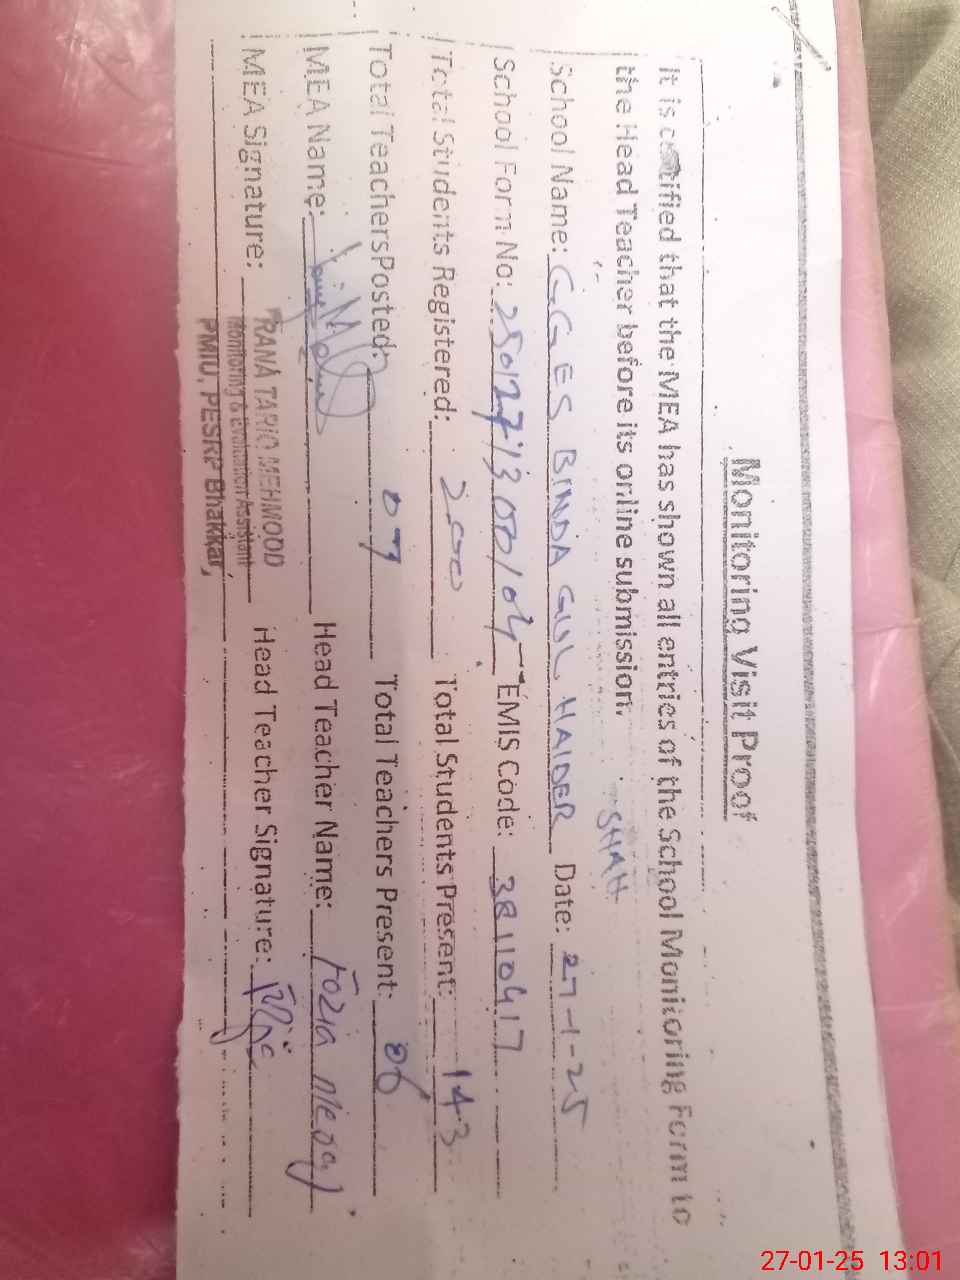 Monitoring Visit Proof
It is certified that the MEA has shown all entries of the School Monitoring Form to
the Head Teacher before its online submission.
SHAH
School Name: GGES BINDA GUL HAIDER Date: 27-1-25
School Form No: EMIS Code: 38110417
Total Students Registered: 200 Total Students Present: 143
Total Teachers Posted: 07 Total Teachers Present: 06
MEA Name: Head Teacher Name: Fozia
MEA Signature: Head Teacher Signature:
RANA TARIQ MEHMOOD
Monitoring & Evaluation Assistant
PMIU, PESRP Bhakkar,
27-01-25 13:01